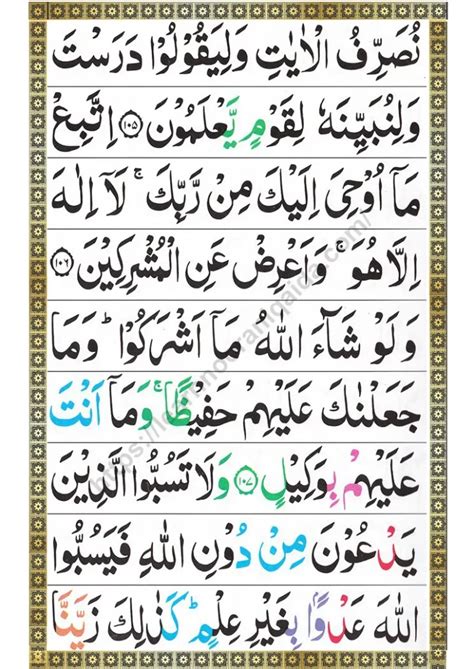 نُصَرِّفُ الْاٰيٰتِ وَلِيَقُوْلُوْا دَرَسْتَ
وَلِنُبَيِّنَهٗ لِقَوْمٍ يَّعْلَمُوْنَ ﴿۱۰۵﴾ اِتَّبِعْ
مَاۤ اُوْحِیَ اِلَيْكَ مِنْ رَّبِّكَ ۚ لَاۤ اِلٰهَ
اِلَّا هُوَ ۚ وَاَعْرِضْ عَنِ الْمُشْرِكِيْنَ ﴿۱۰۶﴾
وَلَوْ شَآءَ اللّٰهُ مَاۤ اَشْرَكُوْا ؕ وَمَا
جَعَلْنٰكَ عَلَيْهِمْ حَفِيْظًا ۚ وَمَاۤ اَنْتَ
عَلَيْهِمْ بِوَكِيْلٍ ﴿۱۰۷﴾ وَلَا تَسُبُّوا الَّذِيْنَ
يَدْعُوْنَ مِنْ دُوْنِ اللّٰهِ فَيَسُبُّوا
اللّٰهَ عَدْوًۢا بِغَيْرِ عِلْمٍ ؕ كَذٰلِكَ زَيَّنَّا